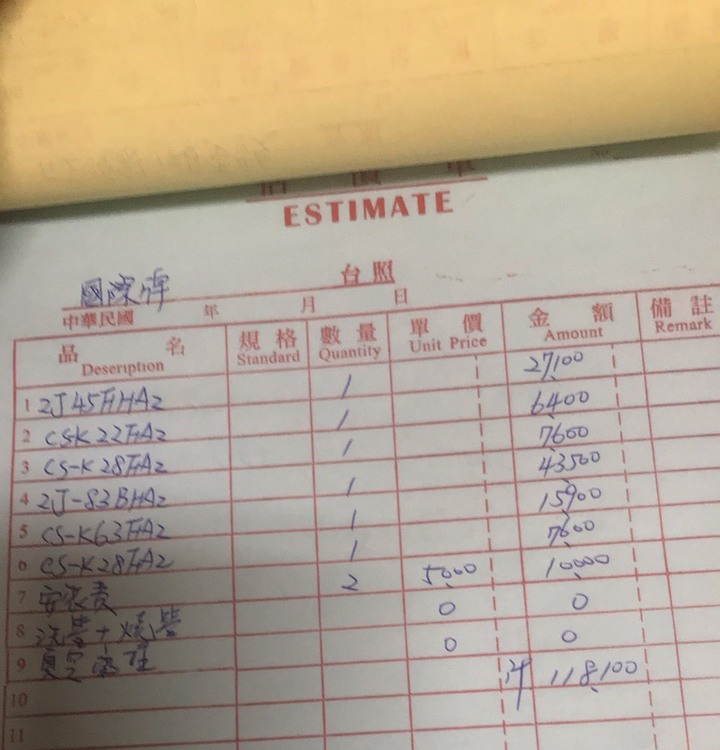 估價單
No.
ESTIMATE
國際牌 台照
中華民國 年 月 日
品 名 規 格 數 量 單 價 金 額 備 註
Deseription Standard Quantity Unit Price Amount Remark
1 2J45FHA2 1 27,100
2 CSK22FA2 1 6400
3 CS-K28FA2 1 7600
4 2J-83BHA2 1 43500
5 CS-K63FA2 1 15900
6 CS-K28FA2 1 7600
7 安裝費 2 5000 10000
8 洗管+燒管 0 0
9 真空處理 0 0
10 計 118,100
11